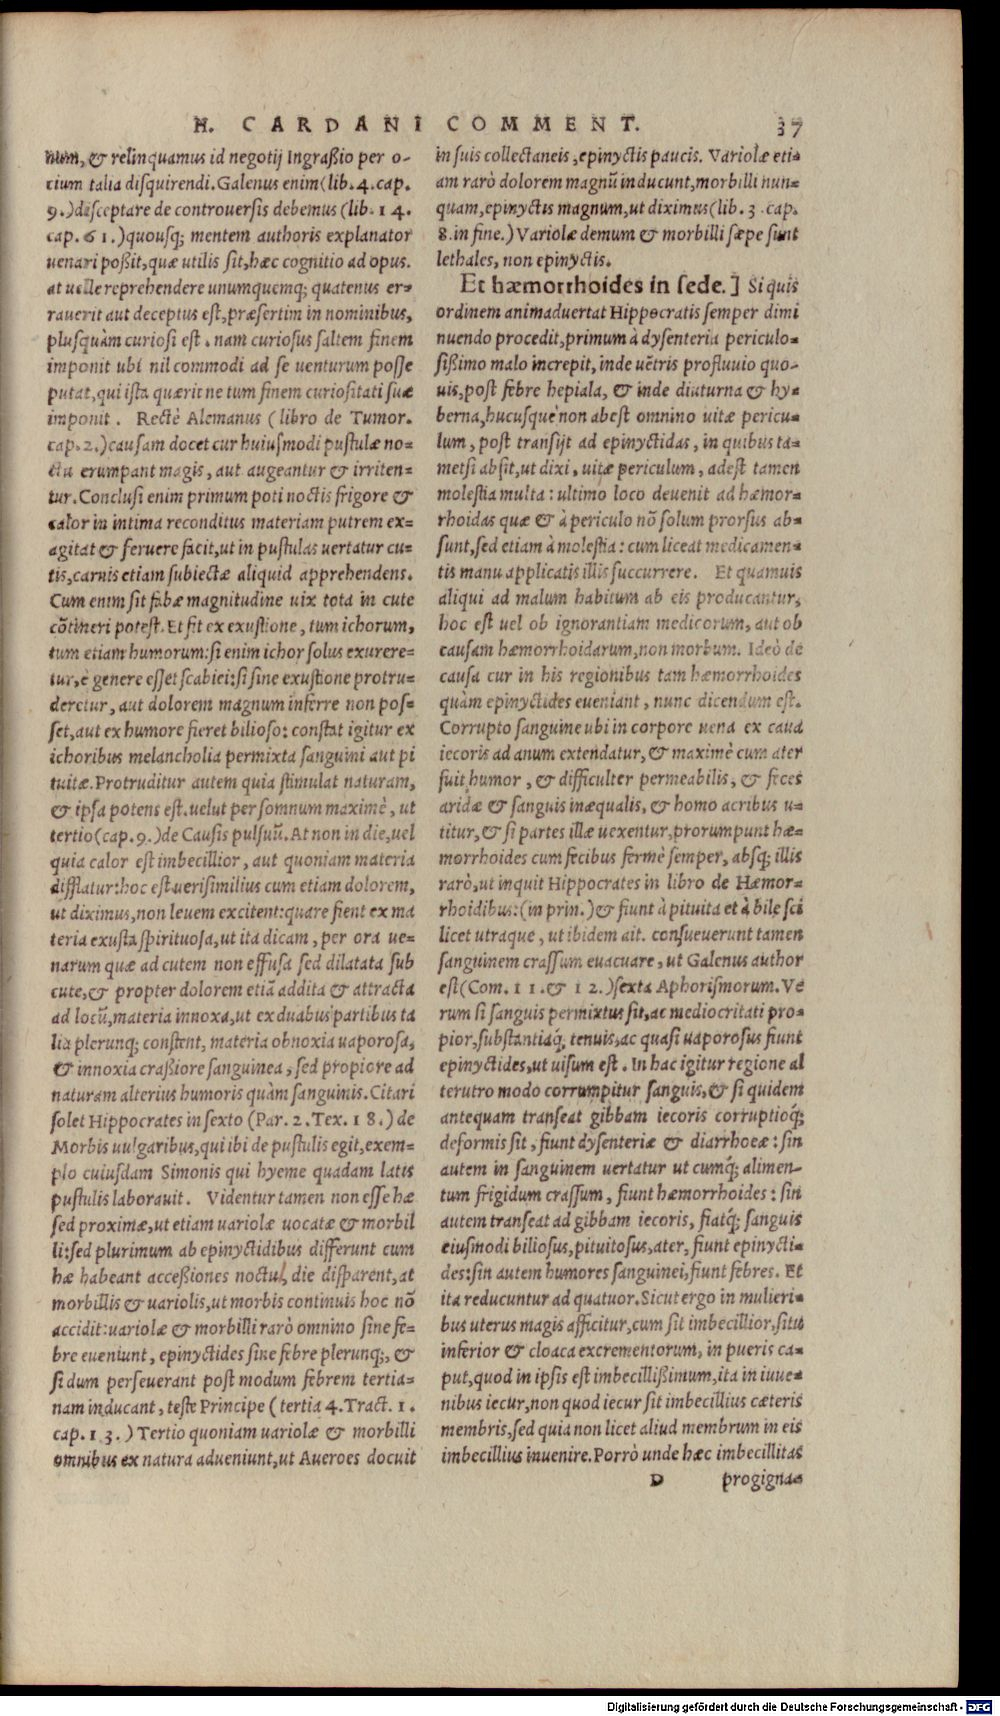 H. CARDANI COMMENT. 37
num, & relinquamus id negotij Ingraßio per o-
tium talia disquirendi. Galenus enim (lib. 4. cap.
9.) disceptare de controuersis debemus (lib. 14.
cap. 61.) quousq; mentem authoris explanator
uenari poßit, quæ utilis sit, hæc cognitio ad opus.
at uelle reprehendere unumquemq; quatenus er=
rauerit aut deceptus est, præsertim in nominibus,
plusquàm curiosi est. nam curiosus saltem finem
imponit ubi nil commodi ad se uenturum posse
putat, qui ista quærit ne tum finem curiositati suæ
imponit. Rectè Alemanus (libro de Tumor.
cap. 2.) causam docet cur huiusmodi pustulæ no=
ctu erumpant magis, aut augeantur & irriten=
tur. Conclusi enim primum poti noctis frigore &
calor in intima reconditus materiam putrem ex=
agitat & feruere facit, ut in pustulas uertatur cu=
tis, carnis etiam subiectæ aliquid apprehendens.
Cum enim sit fabæ magnitudine uix tota in cute
cõtineri potest. Et fit ex exustione, tum ichorum,
tum etiam humorum: si enim ichor solus exurere=
tur, è genere esset scabiei: si sine exustione protru=
deretur, aut dolorem magnum inferre non pos=
set, aut ex humore fieret bilioso: constat igitur ex
ichoribus melancholia permixta sanguini aut pi
tuitæ. Protruditur autem quia stimulat naturam,
& ipsa potens est. uelut per somnum maximè, ut
tertio (cap. 9.) de Causis pulsuũ. At non in die, uel
quia calor est imbecillior, aut quoniam materia
difflatur: hoc est uerisimilius cum etiam dolorem,
ut diximus, non leuem excitent: quare fient ex ma
teria exusta spirituosa, ut ita dicam, per ora ue=
narum quæ ad cutem non effusa sed dilatata sub
cute, & propter dolorem etiã addita & attracta
ad locũ, materia innoxa, ut ex duabus partibus ta
lia plerunq; constent, materia obnoxia uaporosa,
& innoxia craßiore sanguinea, sed propiore ad
naturam alterius humoris quàm sanguinis. Citari
solet Hippocrates in sexto (Par. 2. Tex. 18.) de
Morbis uulgaribus, qui ibi de pustulis egit, exem=
plo cuiusdam Simonis qui hyeme quadam latis
pustulis laborauit. Videntur tamen non esse hæ
sed proximæ, ut etiam uariolæ uocatæ & morbil
li: sed plurimum ab epinyctidibus differunt cum
hæ habeant acceßiones noctu, die disparent, at
morbillis & uariolis, ut morbis continuis hoc nõ
accidit: uariolæ & morbilli rarò omnino sine fe=
bre eueniunt, epinyctides sine febre plerunq;, &
si dum perseuerant post modum febrem tertia=
nam inducant, teste Principe (tertia 4. Tract. 1.
cap. 13.) Tertio quoniam uariolæ & morbilli
omnibus ex natura adueniunt, ut Aueroes docuit
in suis collectaneis, epinyctis paucis. Variolæ eti=
am rarò dolorem magnũ inducunt, morbilli nun=
quam, epinyctis magnum, ut diximus (lib. 3. cap.
8. in fine.) Variolæ demum & morbilli sæpe sunt
lethales, non epinyctis.
Et hæmorrhoides in sede.] Si quis
ordinem animaduertat Hippocratis semper dimi
nuendo procedit, primum à dysenteria periculo=
sißimo malo increpit, inde uẽtris profluuio quo-
uis, post febre hepiala, & inde diuturna & hy=
berna, hucusquè non abest omnino uitæ pericu=
lum, post transijt ad epinyctidas, in quibus ta=
metsi absit, ut dixi, uitæ periculum, adest tamen
molestia multa: ultimo loco deuenit ad hæmor=
rhoidas quæ & à periculo nõ solum prorsus ab=
sunt, sed etiam à molestia: cum liceat medicamen=
tis manu applicatis illis succurrere. Et quamuis
aliqui ad malum habitum ab eis producantur,
hoc est uel ob ignorantiam medicorum, aut ob
causam hæmorrhoidarum, non morbum. Ideò de
causa cur in his regionibus tam hæmorrhoides
quàm epinyctides eueniant, nunc dicendum est.
Corrupto sanguine ubi in corpore uena ex caua
iecoris ad anum extendatur, & maximè cum ater
fuit humor, & difficulter permeabilis, & feces
aridæ & sanguis inæqualis, & homo acribus u=
titur, & si partes illæ uexentur, prorumpunt hæ=
morrhoides cum fecibus fermè semper, absq; illis
rarò, ut inquit Hippocrates in libro de Hæmor=
rhoidibus: (in prin.) & fiunt à pituita et à bile sci
licet utraque, ut ibidem ait. consueuerunt tamen
sanguinem crassum euacuare, ut Galenus author
est (Com. 11. & 12.) sexta Aphorismorum. Ve
rum si sanguis permixtus sit, ac mediocritati pro=
pior, substantiaq́; tenuis, ac quasi uaporosus fiunt
epinyctides, ut uisum est. In hac igitur regione al
terutro modo corrumpitur sanguis, & si quidem
antequam transeat gibbam iecoris corruptioq́;
deformis sit, fiunt dysenteriæ & diarrhoeæ: sin
autem in sanguinem uertatur ut cumq́; alimen-
tum frigidum crassum, fiunt hæmorrhoides: sin
autem transeat ad gibbam iecoris, fiatq́; sanguis
eiusmodi biliosus, pituitosus, ater, fiunt epinycti=
des: sin autem humores sanguinei, fiunt febres. Et
ita reducuntur ad quatuor. Sicut ergo in mulieri=
bus uterus magis afficitur, cum sit imbecillior, situ
inferior & cloaca excrementorum, in pueris ca=
put, quod in ipsis est imbecillißimum, ita in iuue=
nibus iecur, non quod iecur sit imbecillius cæteris
membris, sed quia non licet aliud membrum in eis
imbecillius inuenire. Porrò unde hæc imbecillitas
D progigna=
Digitalisierung gefördert durch die Deutsche Forschungsgemeinschaft - DFG